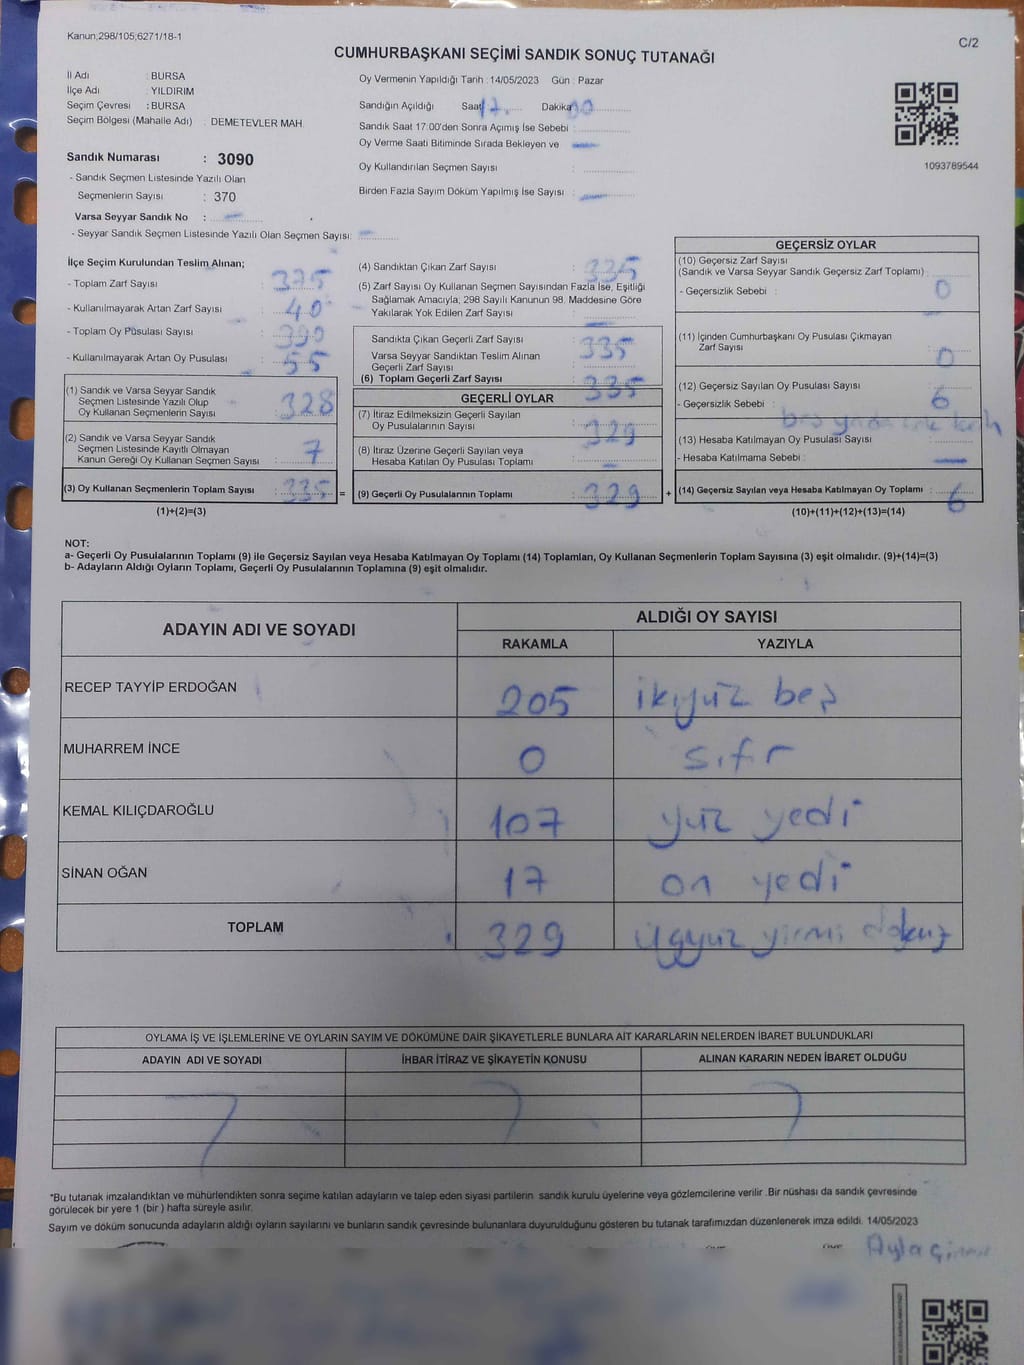 Kanun;298/105;6271/18-1
C/2
CUMHURBAŞKANI SEÇİMİ SANDIK SONUÇ TUTANAĞI
İl Adı : BURSA
İlçe Adı : YILDIRIM
Seçim Çevresi : BURSA
Seçim Bölgesi (Mahalle Adı) : DEMETEVLER MAH.
Oy Vermenin Yapıldığı Tarih : 14/05/2023 Gün : Pazar
Sandığın Açıldığı Saat 17 Dakika 00
Sandık Saat 17:00'den Sonra Açılmış İse Sebebi :
Oy Verme Saati Bitiminde Sırada Bekleyen ve
Oy Kullandırılan Seçmen Sayısı :
Birden Fazla Sayım Döküm Yapılmış İse Sayısı :
1093789544
Sandık Numarası : 3090
- Sandık Seçmen Listesinde Yazılı Olan
Seçmenlerin Sayısı : 370
Varsa Seyyar Sandık No :
- Seyyar Sandık Seçmen Listesinde Yazılı Olan Seçmen Sayısı:
İlçe Seçim Kurulundan Teslim Alınan;
- Toplam Zarf Sayısı : 375
- Kullanılmayarak Artan Zarf Sayısı : 40
- Toplam Oy Pusulası Sayısı : 390
- Kullanılmayarak Artan Oy Pusulası : 55
(1) Sandık ve Varsa Seyyar Sandık
Seçmen Listesinde Yazılı Olup
Oy Kullanan Seçmenlerin Sayısı : 328
(2) Sandık ve Varsa Seyyar Sandık
Seçmen Listesinde Kayıtlı Olmayan
Kanun Gereği Oy Kullanan Seçmen Sayısı : 7
(3) Oy Kullanan Seçmenlerin Toplam Sayısı : 335 =
(1)+(2)=(3)
(4) Sandıktan Çıkan Zarf Sayısı : 335
(5) Zarf Sayısı Oy Kullanan Seçmen Sayısından Fazla İse, Eşitliği
Sağlamak Amacıyla; 298 Sayılı Kanunun 98. Maddesine Göre
Yakılarak Yok Edilen Zarf Sayısı :
Sandıkta Çıkan Geçerli Zarf Sayısı : 335
Varsa Seyyar Sandıktan Teslim Alınan
Geçerli Zarf Sayısı :
(6) Toplam Geçerli Zarf Sayısı : 335
GEÇERLİ OYLAR
(7) İtiraz Edilmeksizin Geçerli Sayılan
Oy Pusulalarının Sayısı : 329
(8) İtiraz Üzerine Geçerli Sayılan veya
Hesaba Katılan Oy Pusulası Toplamı :
(9) Geçerli Oy Pusulalarının Toplamı : 329 +
GEÇERSİZ OYLAR
(10) Geçersiz Zarf Sayısı
(Sandık ve Varsa Seyyar Sandık Geçersiz Zarf Toplamı)
- Geçersizlik Sebebi : 0
(11) İçinden Cumhurbaşkanı Oy Pusulası Çıkmayan
Zarf Sayısı : 0
(12) Geçersiz Sayılan Oy Pusulası Sayısı : 6
- Geçersizlik Sebebi :
(13) Hesaba Katılmayan Oy Pusulası Sayısı :
- Hesaba Katılmama Sebebi :
(14) Geçersiz Sayılan veya Hesaba Katılmayan Oy Toplamı : 6
(10)+(11)+(12)+(13)=(14)
NOT:
a- Geçerli Oy Pusulalarının Toplamı (9) ile Geçersiz Sayılan veya Hesaba Katılmayan Oy Toplamı (14) Toplamları, Oy Kullanan Seçmenlerin Toplam Sayısına (3) eşit olmalıdır. (9)+(14)=(3)
b- Adayların Aldığı Oyların Toplamı, Geçerli Oy Pusulalarının Toplamına (9) eşit olmalıdır.
ADAYIN ADI VE SOYADI
ALDIĞI OY SAYISI
RAKAMLA YAZIYLA
RECEP TAYYİP ERDOĞAN 205 ikiyüz beş
MUHARREM İNCE 0 sıfır
KEMAL KILIÇDAROĞLU 107 yüz yedi
SİNAN OĞAN 17 on yedi
TOPLAM 329 üçyüz yirmi dokuz
OYLAMA İŞ VE İŞLEMLERİNE VE OYLARIN SAYIM VE DÖKÜMÜNE DAİR ŞİKAYETLERLE BUNLARA AİT KARARLARIN NELERDEN İBARET BULUNDUKLARI
ADAYIN ADI VE SOYADI İHBAR İTİRAZ VE ŞİKAYETİN KONUSU ALINAN KARARIN NEDEN İBARET OLDUĞU
*Bu tutanak imzalandıktan ve mühürlendikten sonra seçime katılan adayların ve talep eden siyasi partilerin sandık kurulu üyelerine veya gözlemcilerine verilir .Bir nüshası da sandık çevresinde
görülecek bir yere 1 (bir ) hafta süreyle asılır.
Sayım ve döküm sonucunda adayların aldığı oyların sayılarını ve bunların sandık çevresinde bulunanlara duyurulduğunu gösteren bu tutanak tarafımızdan düzenlenerek imza edildi. 14/05/2023
Ayla